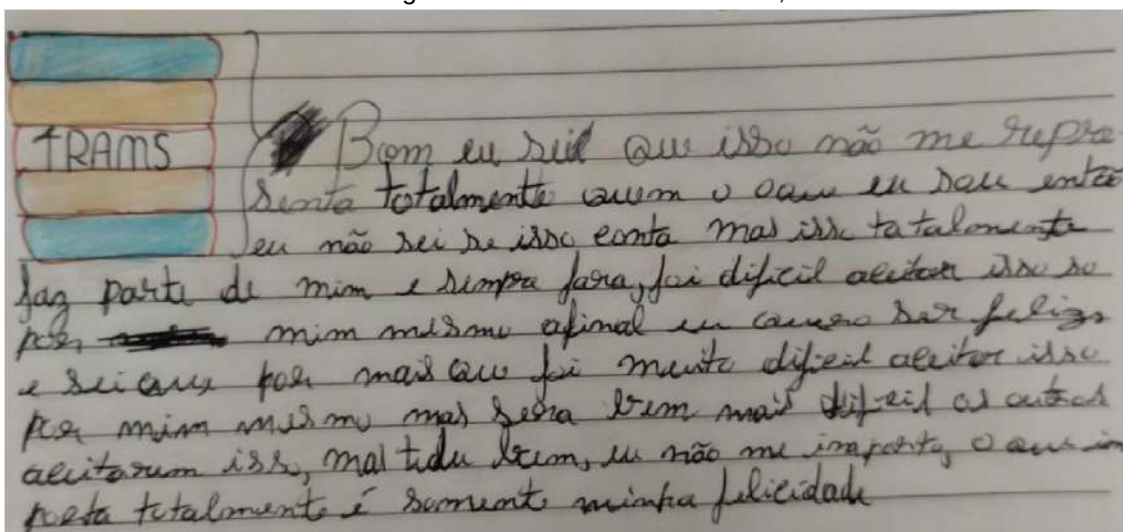 TRAMS
Bom eu sei que isso não me repre
senta totalmente quem o que eu sou entao
eu não sei se isso conta mas isso totalmente
faz parte de mim e sempre fara, foi dificil aceitar isso so
por mim mesmo afinal eu quero ser feliz
e sei que por mais que foi muito dificil aceitar isso
por mim mesmo mas sera bem mais dificil os outros
aceitarem iss, mas tudu bem, eu não me importo, o que im
porta totalmente é somente minha felicidade